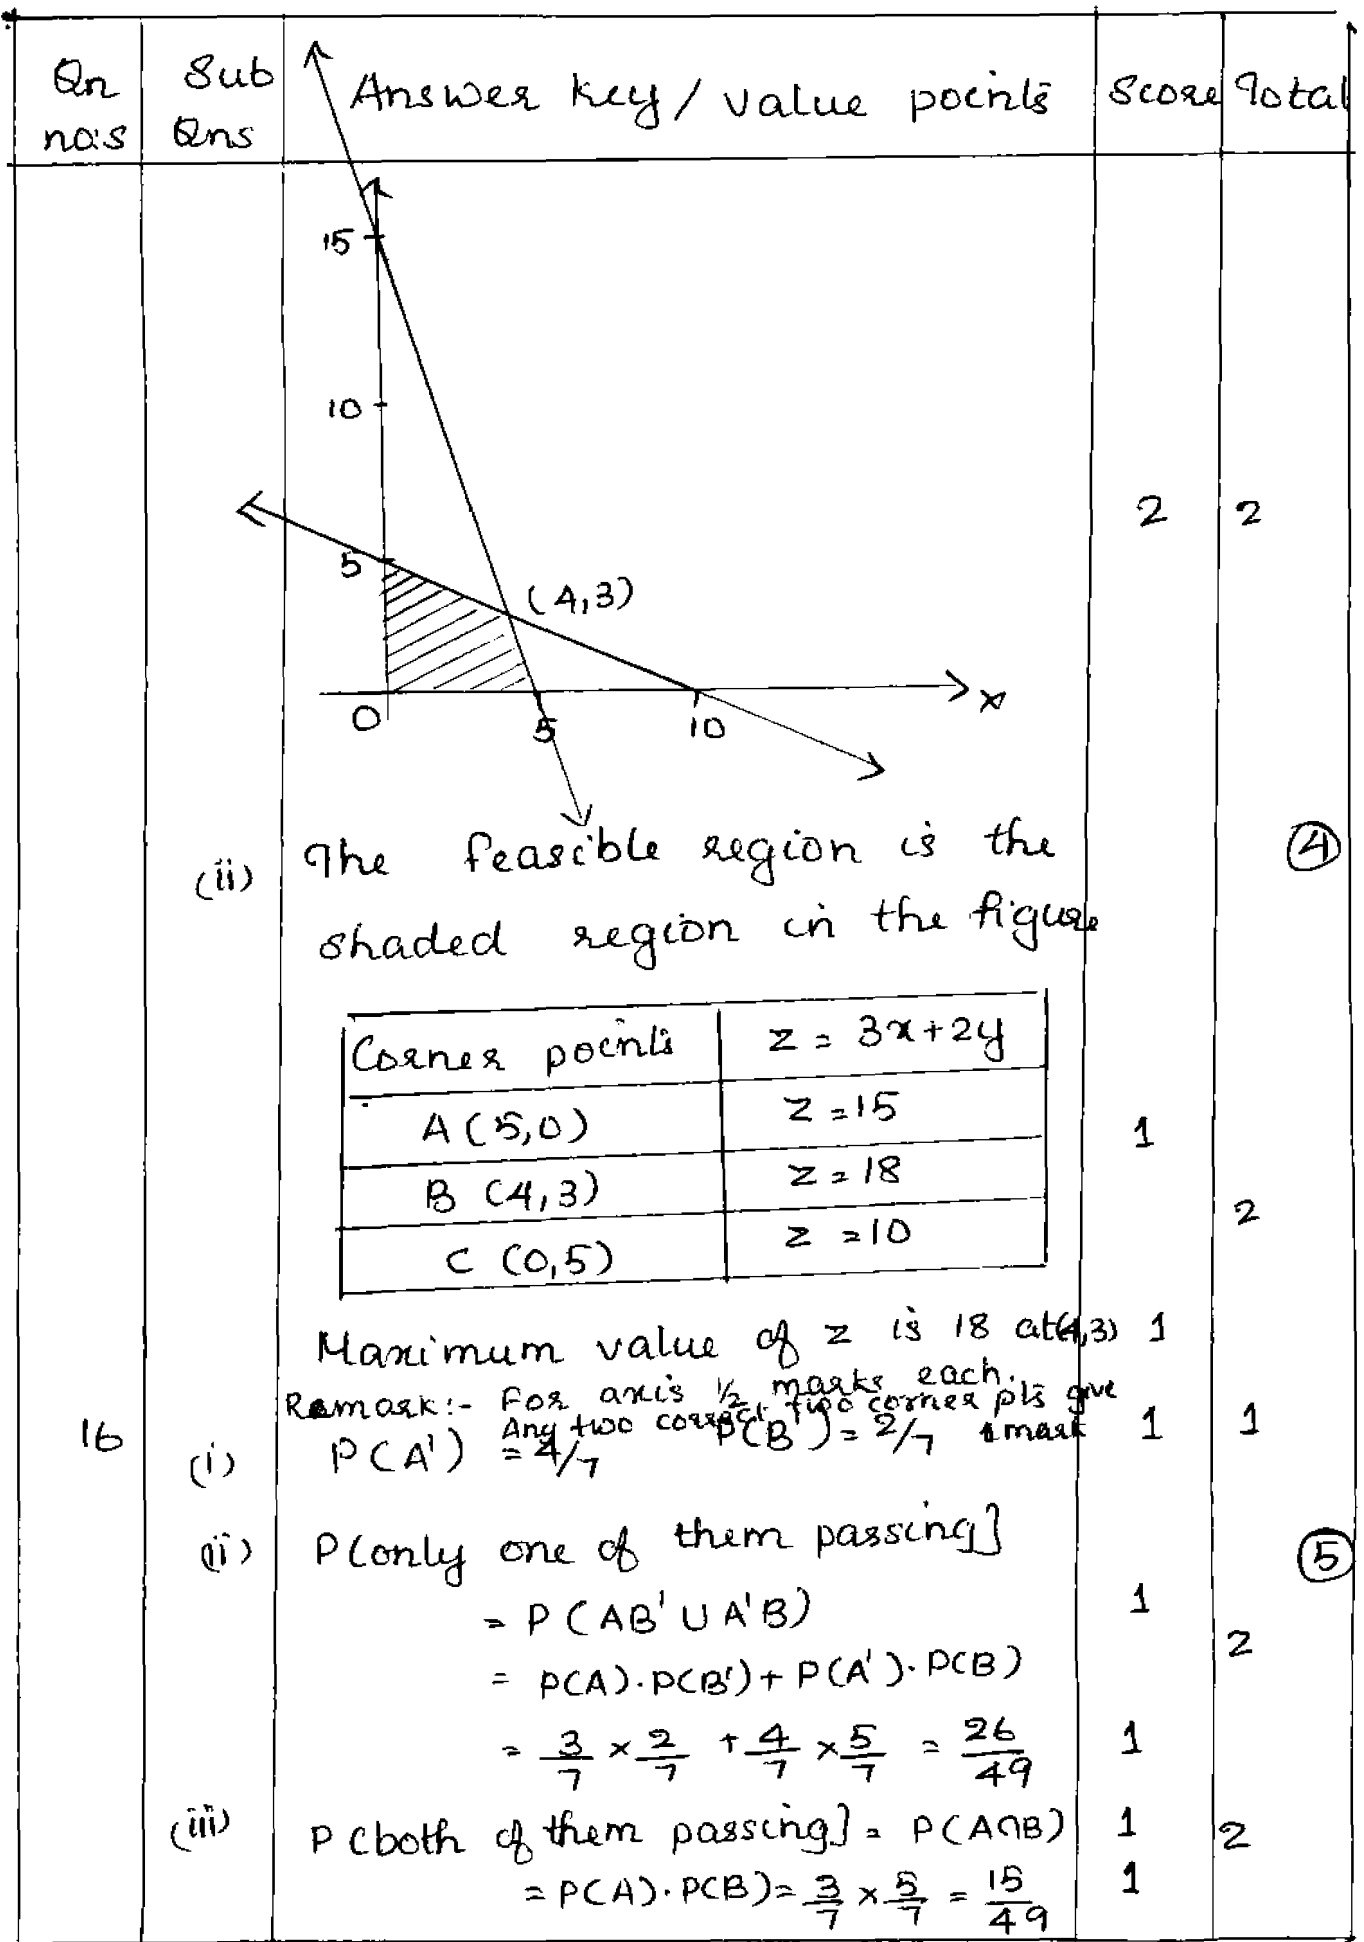 Qn Sub Answer key / value points Score Total
no:s Qns
15
10
2 2
5
(4,3)
x
O 5 10
(ii) The feasible region is the 4
shaded region in the figure
Corner points z = 3x+2y
A (5,0) z = 15 1
B (4,3) z = 18
2
C (0,5) z = 10
Maximum value of z is 18 at (4,3) 1
Remark:- For axis ½ marks each.
Any two correct two corner pts give
1 mark
16 (i) P(A') = 4/7 P(B') = 2/7 1 1
(ii) P(only one of them passing] 5
= P(AB' ∪ A'B) 1
2
= P(A).P(B') + P(A').P(B)
= 3/7 × 2/7 + 4/7 × 5/7 = 26/49 1
(iii) P(both of them passing] = P(A∩B) 1 2
= P(A).P(B) = 3/7 × 5/7 = 15/49 1